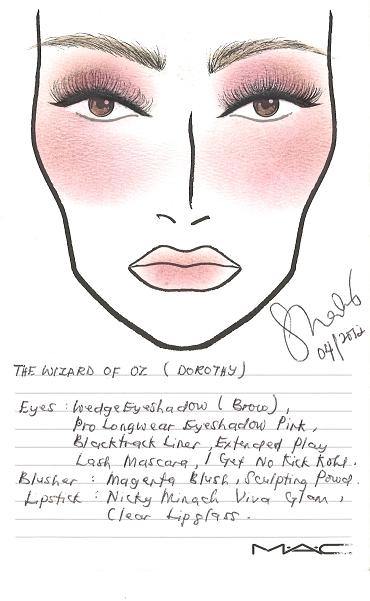 04/2012
THE WIZARD OF OZ ( DOROTHY)
Eyes : Wedge Eyeshadow ( Brow) ,
Pro Longwear Eyeshadow Pink ,
Blacktrack Liner, Extended Play
Lash Mascara, I Get No Kick Kohl.
Blusher : Magenta Blush, Sculpting Powd.
Lipstick : Nicky Minach Viva Glam ,
Clear Lipglass .
M·A·C